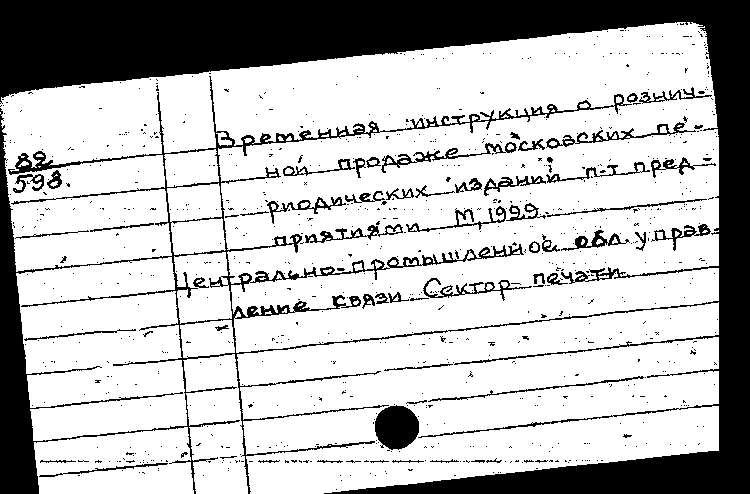 82
598.
Временная инструкция о рознич-
ной продаже московских пе-
риодических изданий п-т пред-
приятиями. М, 1929.
Центрально-промышленное обл. управ-
ление связи. Сектор печати.